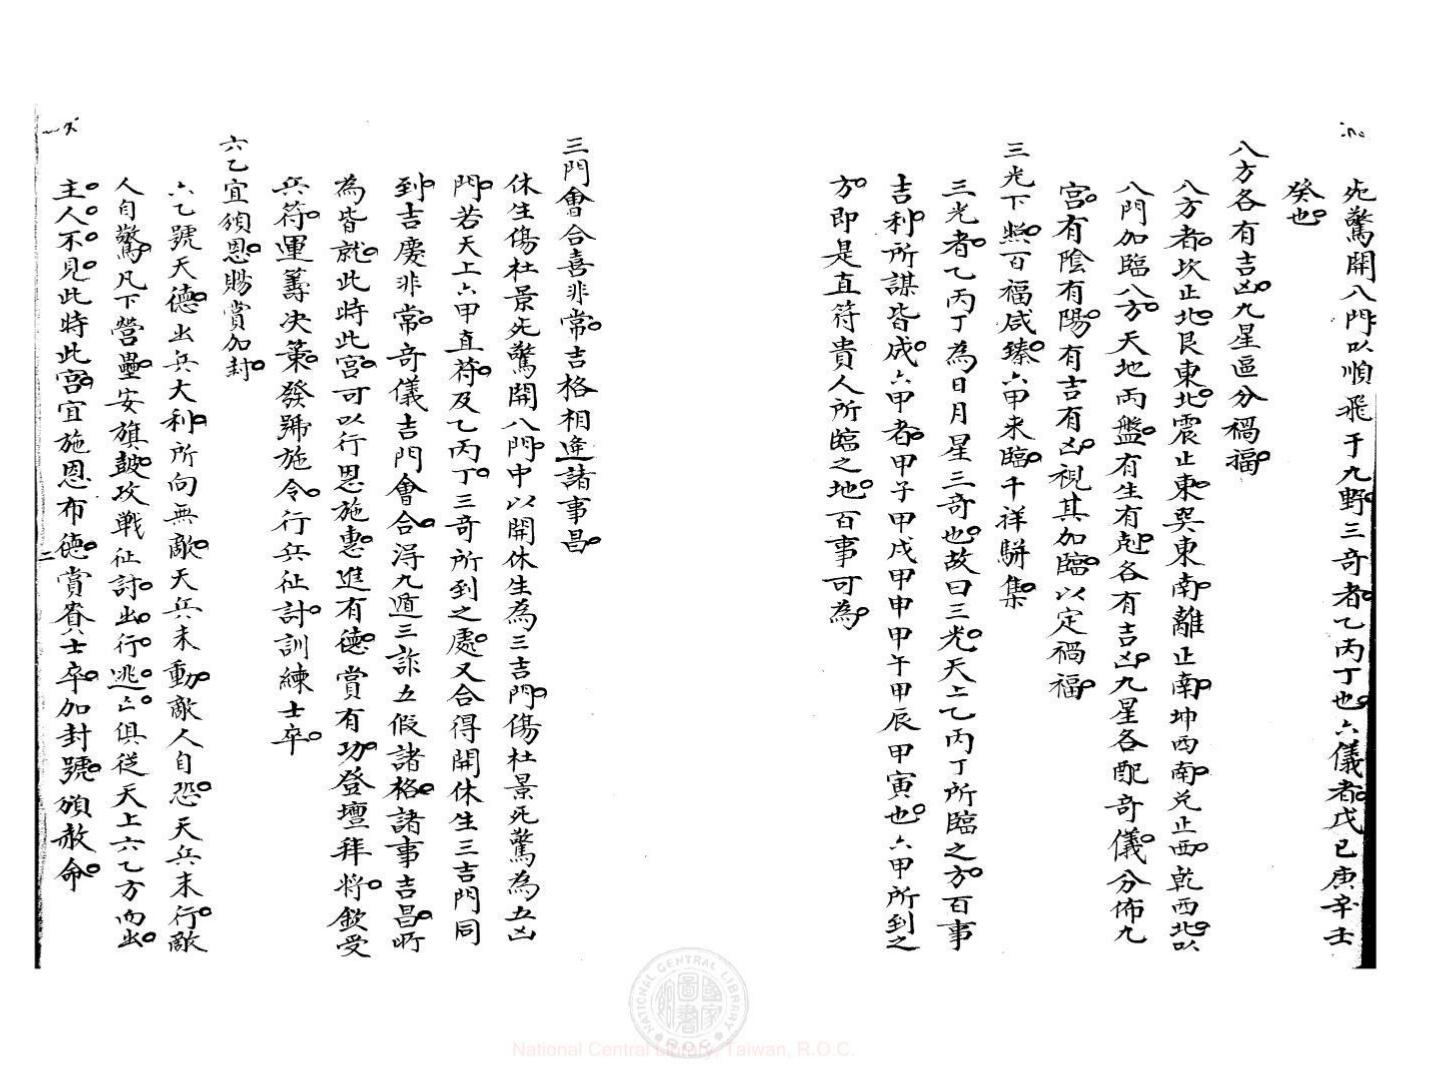 死驚開八門以順飛于九野三奇者乙丙丁也。六儀者戊己庚辛壬
癸也。
八方各有吉凶。九星逼分禍福。
八方者。坎正北。艮東北。震正東。巽東南。離正南。坤西南。兌正西。乾西北。以
八門加臨八方。天地兩盤。有生有剋。各有吉凶。九星各配奇儀。分佈九
宮。有陰有陽。有吉有凶。視其加臨。以定禍福。
三光下照。百福咸臻。六甲來臨。千祥騈集。
三光者。乙丙丁為日月星三奇也。故曰三光。天上乙丙丁所臨之方。百事
吉利。所謀皆成。六甲者。甲子甲戌甲申甲午甲辰甲寅也。六甲所到之
方。即是直符貴人所臨之地。百事可為。
三門會合喜非常。吉格相逢諸事昌。
休生傷杜景死驚開八門。中以開休生為三吉門。傷杜景死驚為五凶
門。若天上六甲直符。及乙丙丁。三奇所到之處。又合得開休生三吉門同
到。吉慶非常。奇儀吉門會合。得九遁三詐五假諸格。諸事吉昌。所
為皆就。此時此宮。可以行恩施惠。進有德。賞有功。登壇拜將。欽受
兵符。運籌決策。發號施令。行兵征討。訓練士卒。
六乙宜頒恩。賜賞加封。
六乙號天德。出兵大利。所向無敵。天兵未動。敵人自恐。天兵未行。敵
人自驚。凡下營壘。安旗鼓。攻戰征討。出。行。逃。亡。俱從天上六乙方而出。
主。人。不。見。此時此宮。宜施恩布德。賞眷士卒。加封號。頒赦命。
二
National Central Library, Taiwan, R.O.C.